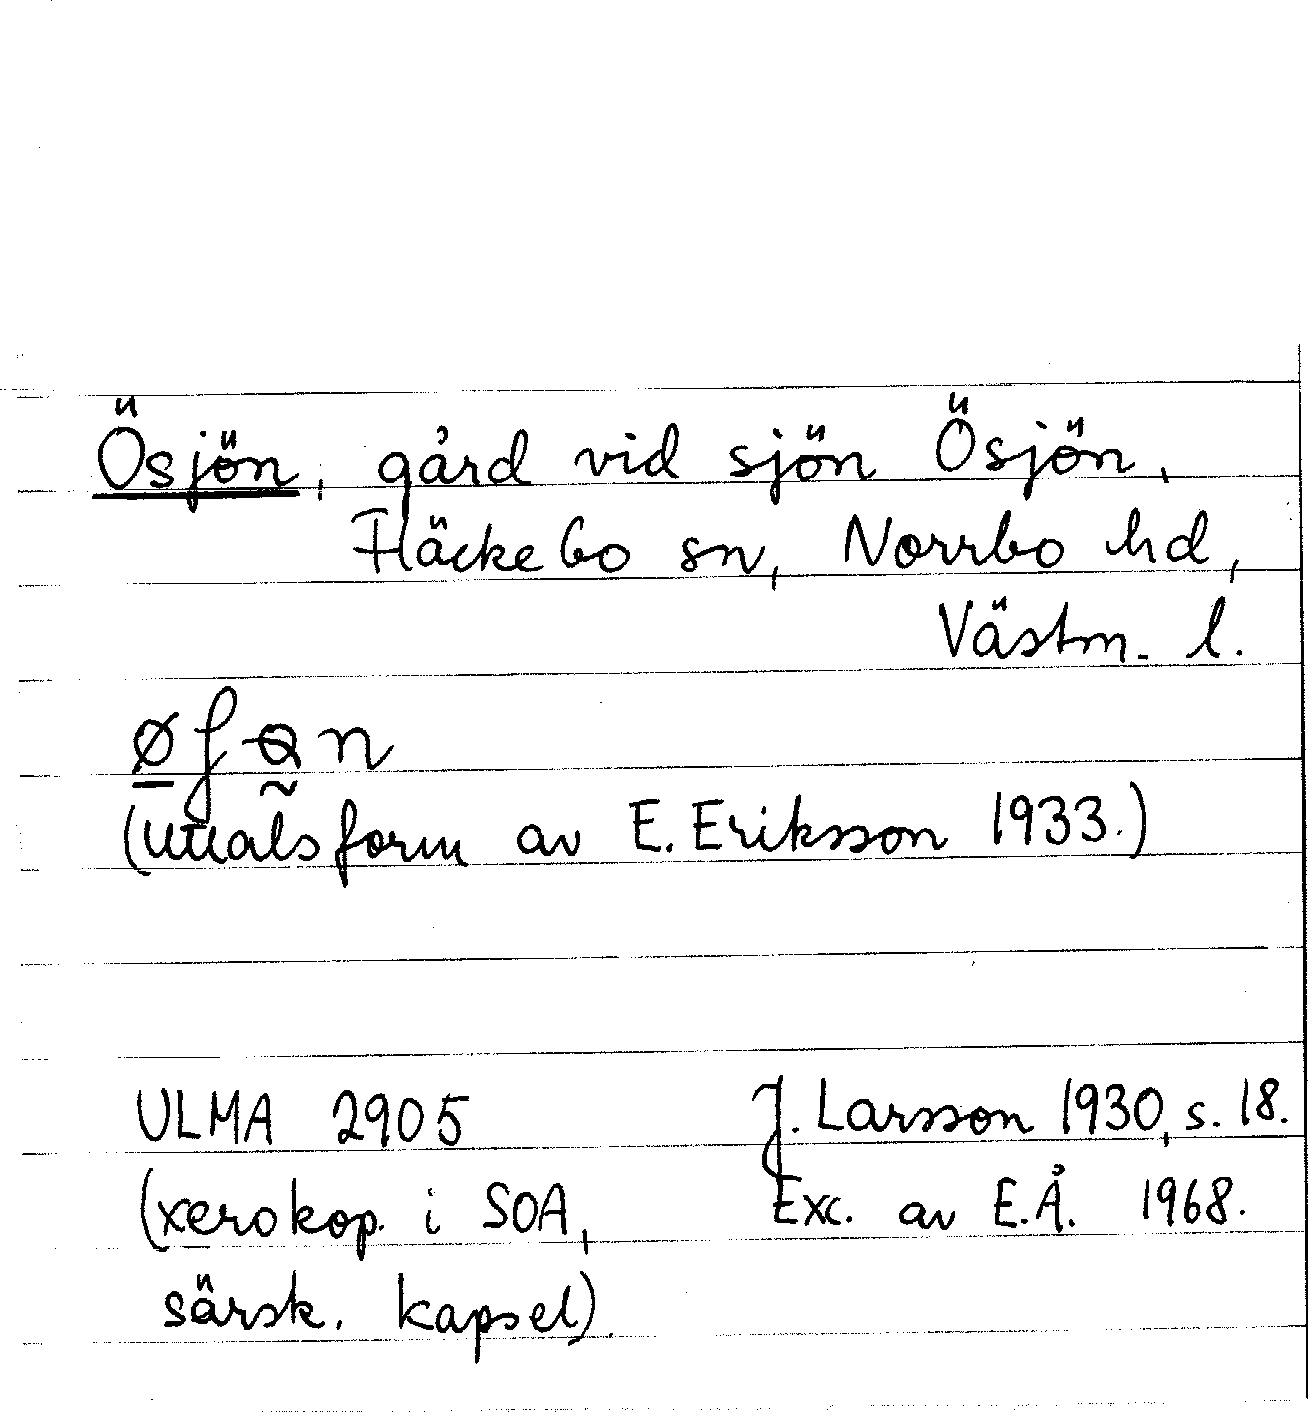 Ösjön, gård vid sjön Ösjön,
Fläckebo sn, Norrbo hd,
Västm. l.
(Uttalsform av E. Eriksson 1933.)
ULMA 2905
(xerokop. i SOA,
särsk. kapsel).
J. Larsson 1930, s. 18.
Exc. av E.Å. 1968.